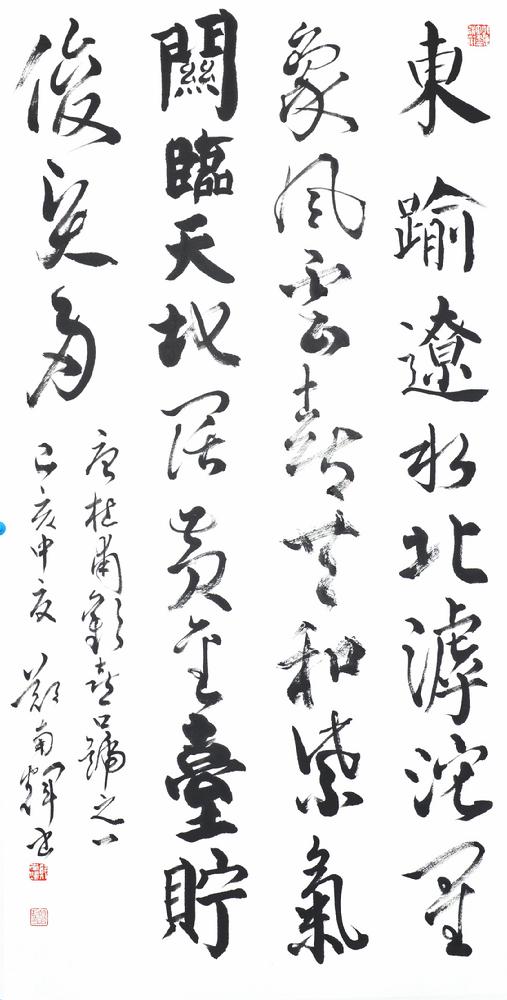 東踰遼水北滹沱星
象風雲喜共和紫氣
關臨天地闊黃金臺貯
俊賢多
唐杜甫歡喜口號之一
己亥中夏鄭南輝書